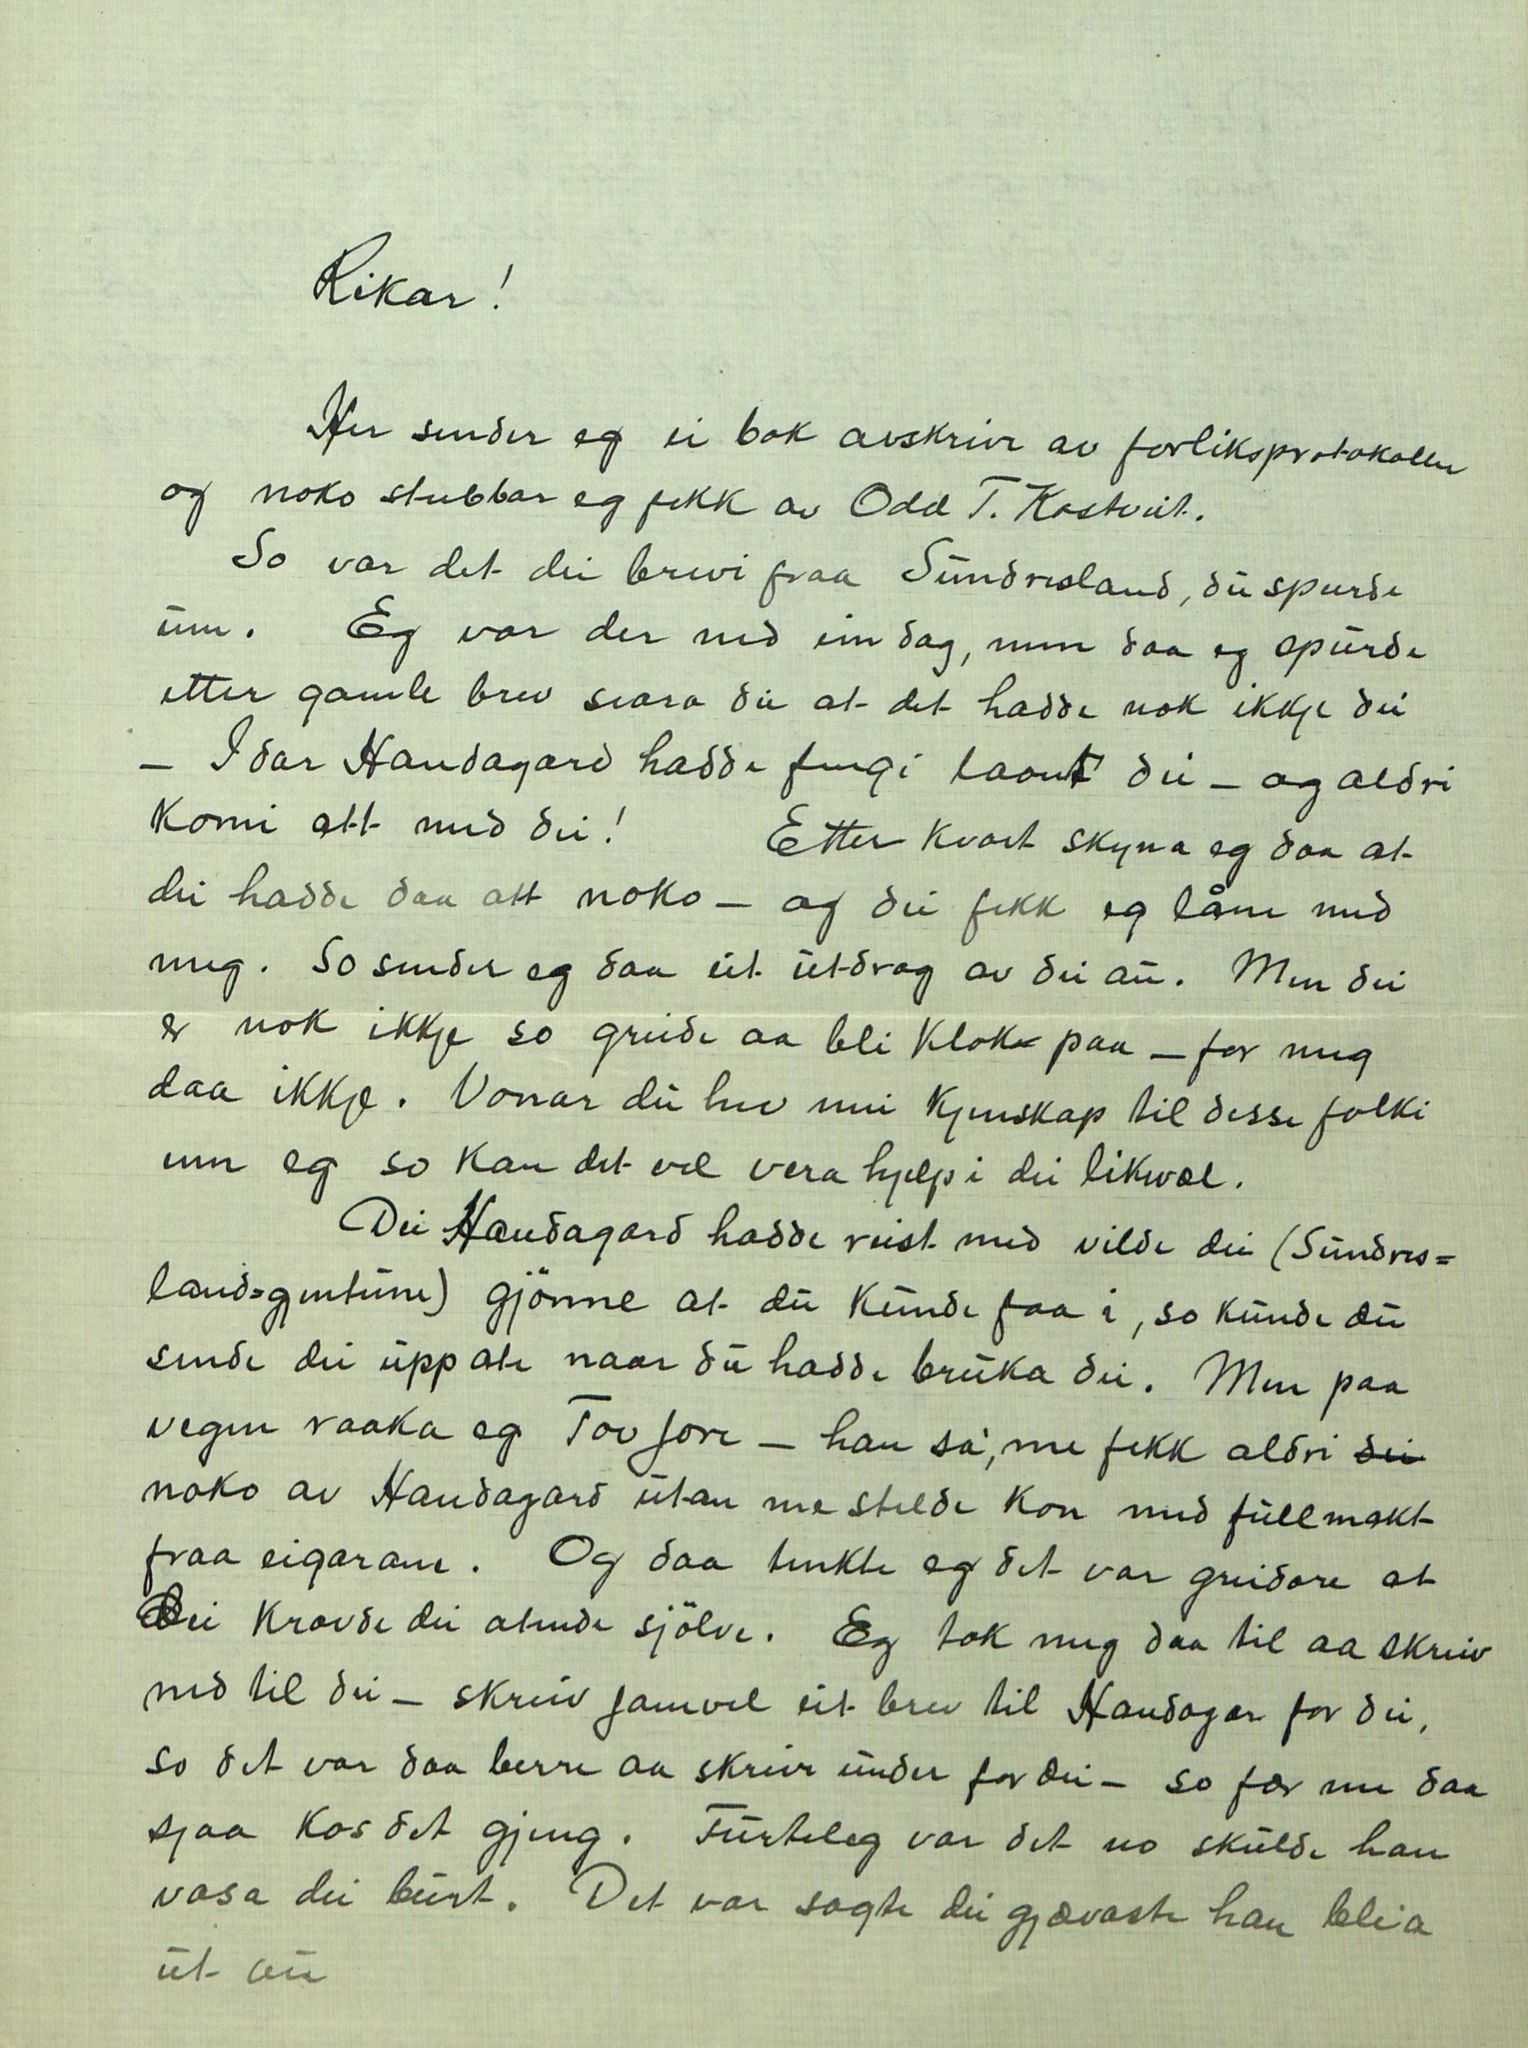 Rikar!
Her sender eg ei bok avskrive av forliksprotokollen
og noko stubbar eg fekk av Odd T. Kostveit.
So var det dei brevi fraa Sundresland, du spurde
um. Eg var der ned ein dag, men daa eg spurde
etter gamle brev svara dei at det hadde nok ikkje dei
— Idar Handagard hadde fengi laant dei — og aldri
komi att med dei! Etter kvart skyna eg daa at
dei hadde daa att noko — og dei fekk eg låne med
meg. So sender eg daa eit utdrag av dei au. Men dei
er nok ikkje so greide aa bli klok paa — for meg
daa ikkje. Vonar du hev mei kjenskap til desse folki
enn eg so kan det vel vera hjelp i dei likevæl.
Dei Handagard hadde reist med vilde dei (Sundres=
land=gentune) gjönne at du kunde faa i, so kunde du
sende dei uppate naar du hadde bruka dei. Men paa
vegen raaka eg Tov Jore — han sa, me fekk aldri dei
noko av Handagard utan me stelde kon med fullmakt
fraa eigarane. Og daa tenkte eg det var greidare at
Dei kravde dei atende sjölve. Eg tok meg daa til aa skreiv
ned til dei — skreiv jamvel eit brev til Handagar for dei,
so det var daa berre aa skrive under for dei — so fær me daa
sjaa kos det gjeng. Furteleg var det no skulde han
vasa dei burt. Det var sagte dei gjævaste han blei a
ut au